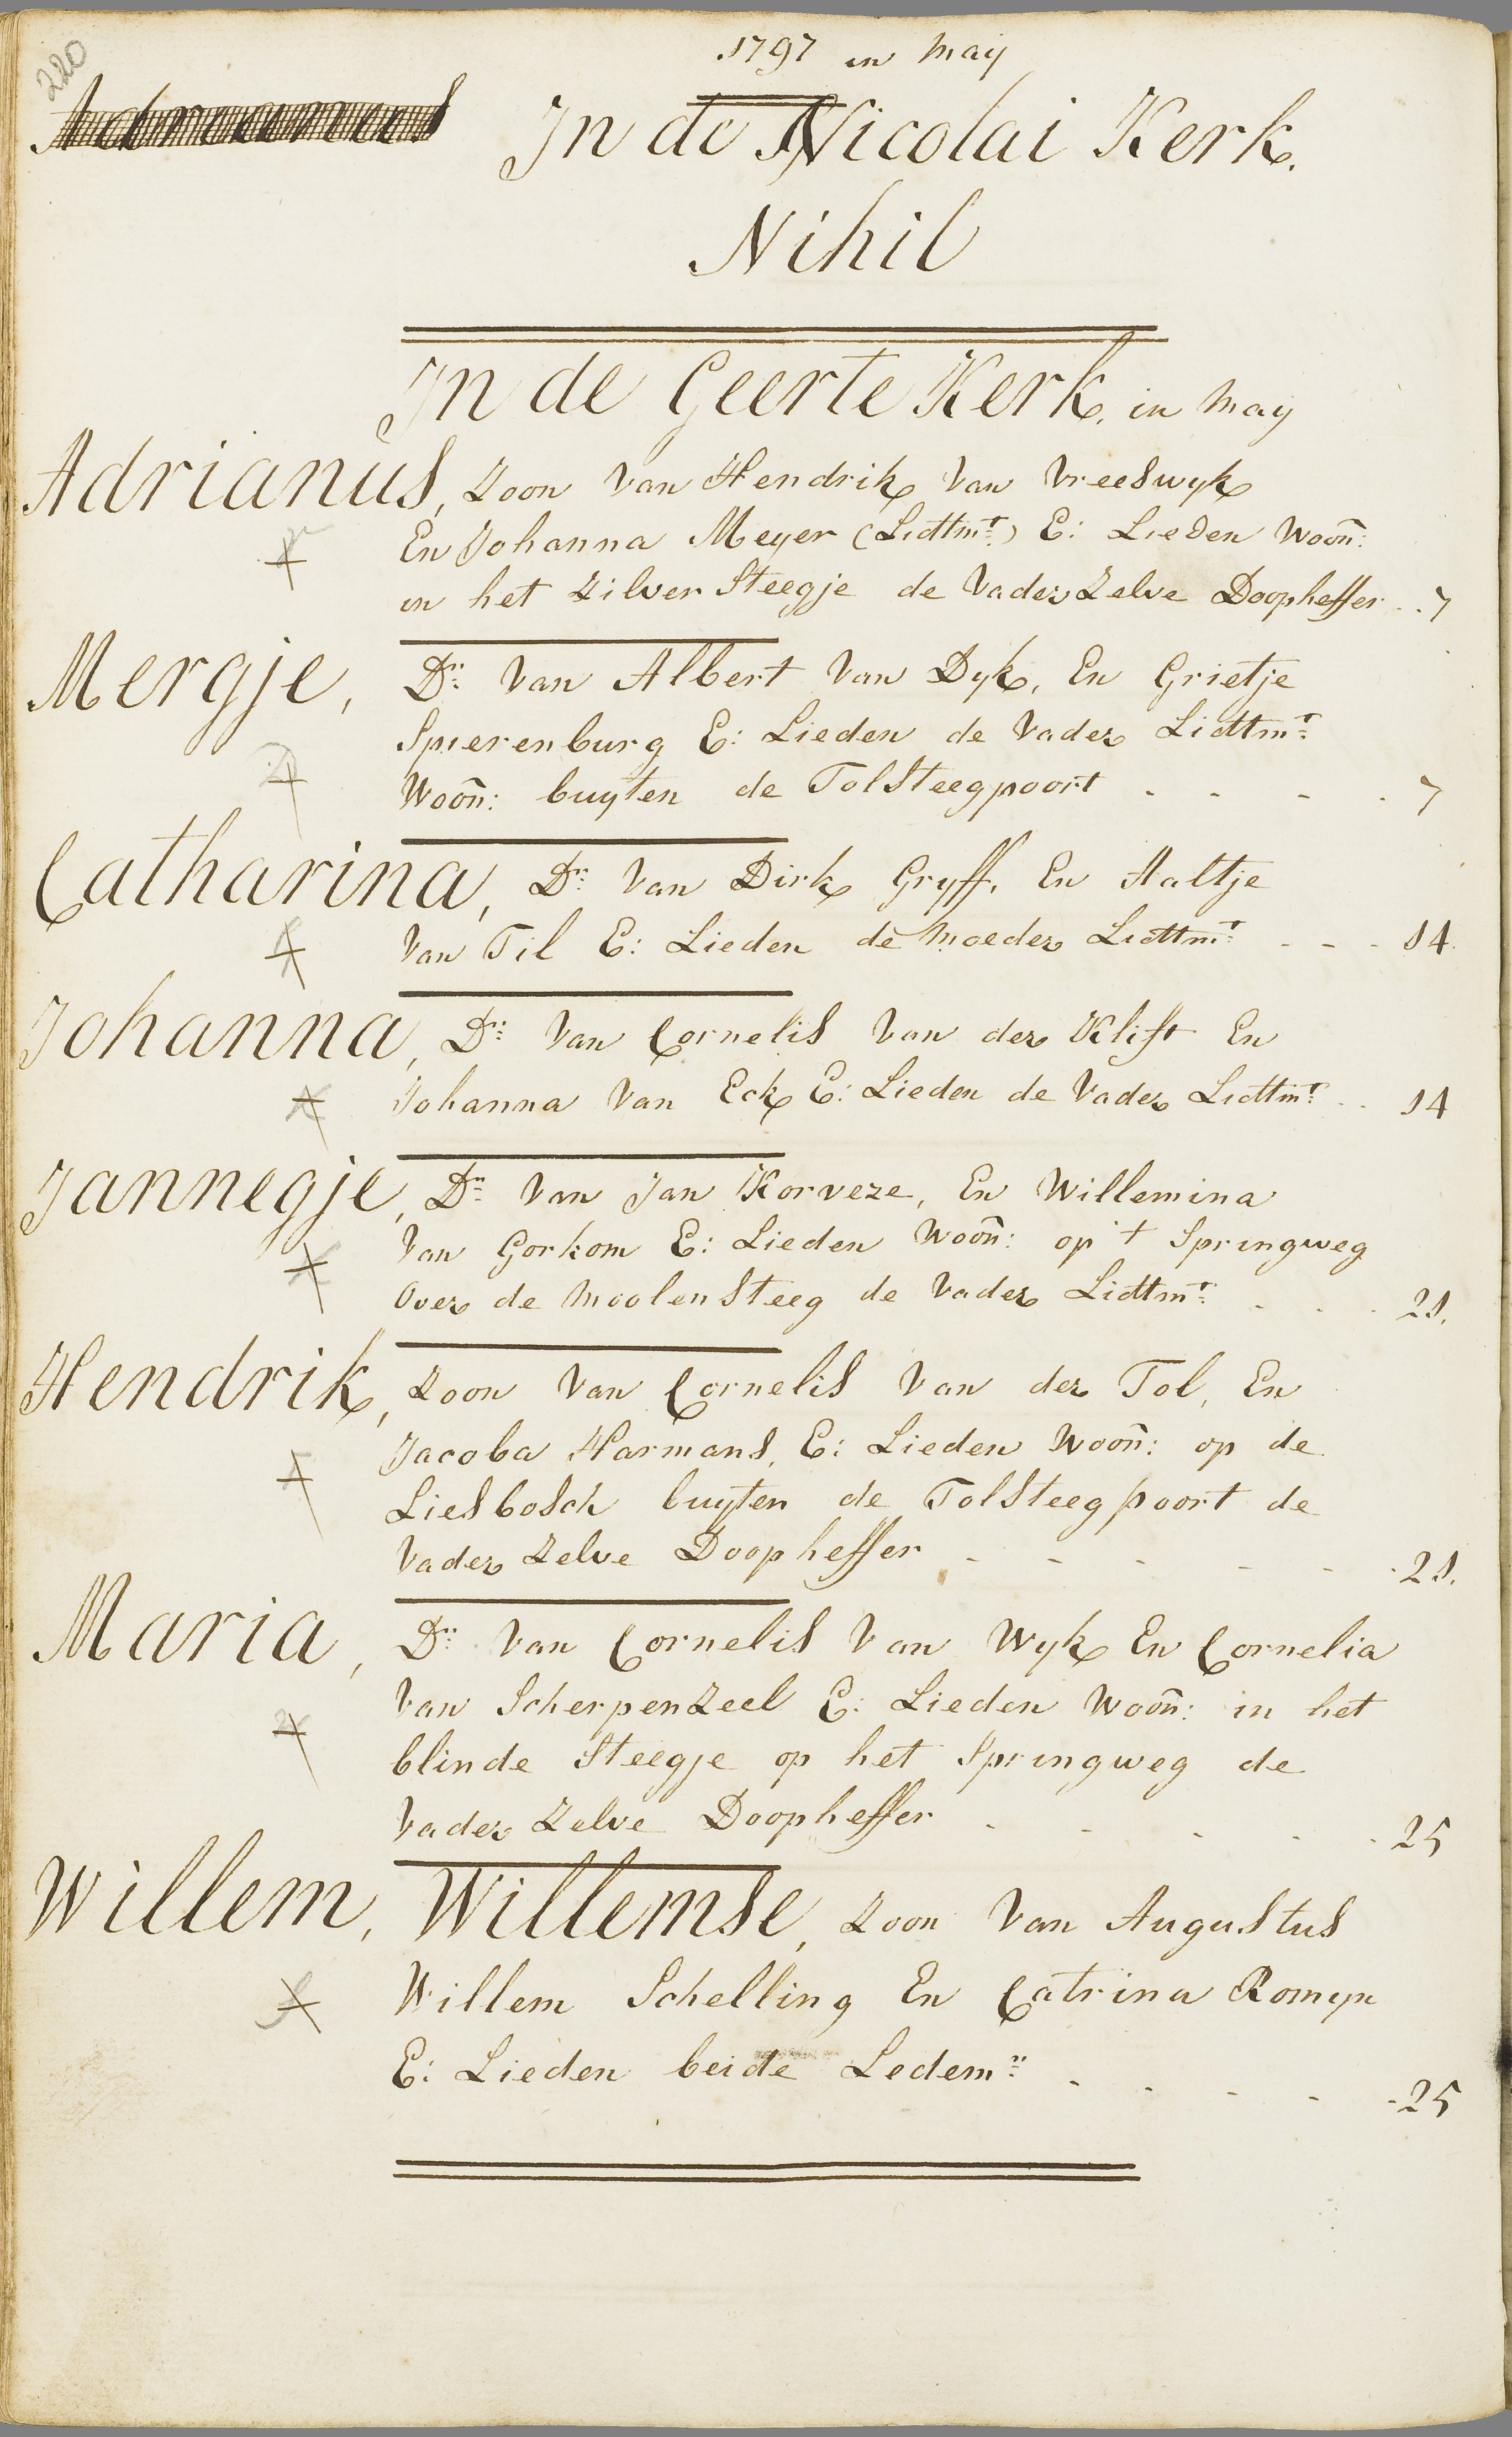 220
1797 in May
Adrianus In de Nicolai Kerk.
Nihil
In de Geerte Kerk. in May
Adrianus, Zoon van Hendrik van Vreeswyk
En Johanna Meyer (Lidtmt:) E: Lieden Woon̄:
in het Zilver Steegje de Vader Zelve Doopheffer .. 7
Mergje, Dr: van Albert van Dyk, En Grietje
Spierenburg E: Lieden de Vader Lidtmt:
Woon̄: buyten de TolSteegpoort - - - - 7
Catharina, Dr: van Dirk Gryff, En Aaltje
van Til E: Lieden de Moeder Lidtmt: - - - 14.
Johanna, Dr: van Cornelis van der Klift En
Johanna van Eck E: Lieden de Vader Lidtmt: .. 14
Jannegje, Dr: van Jan Korveze, En Willemina
van Gorkom E: Lieden Woon̄: op 't Springweg
Over de Moolen Steeg de Vader Lidtmt: - - - 21.
Hendrik, Zoon van Cornelis van der Tol, En
Jacoba Harmans, E: Lieden Woon̄: op de
Liesbosch buyten de TolSteegpoort de
Vader Zelve Doopheffer - - - - - - 21.
Maria, Dr: van Cornelis van Wyk En Cornelia
van Scherpenzeel E: Lieden Woon̄: in het
blinde Steegje op het Springweg de
Vader Zelve Doopheffer - - - - - 25
Willem, Willemse, Zoon van Augustus
Willem Schelling En Catrina Romyn
E: Lieden beide Ledemn: - - - - - 25